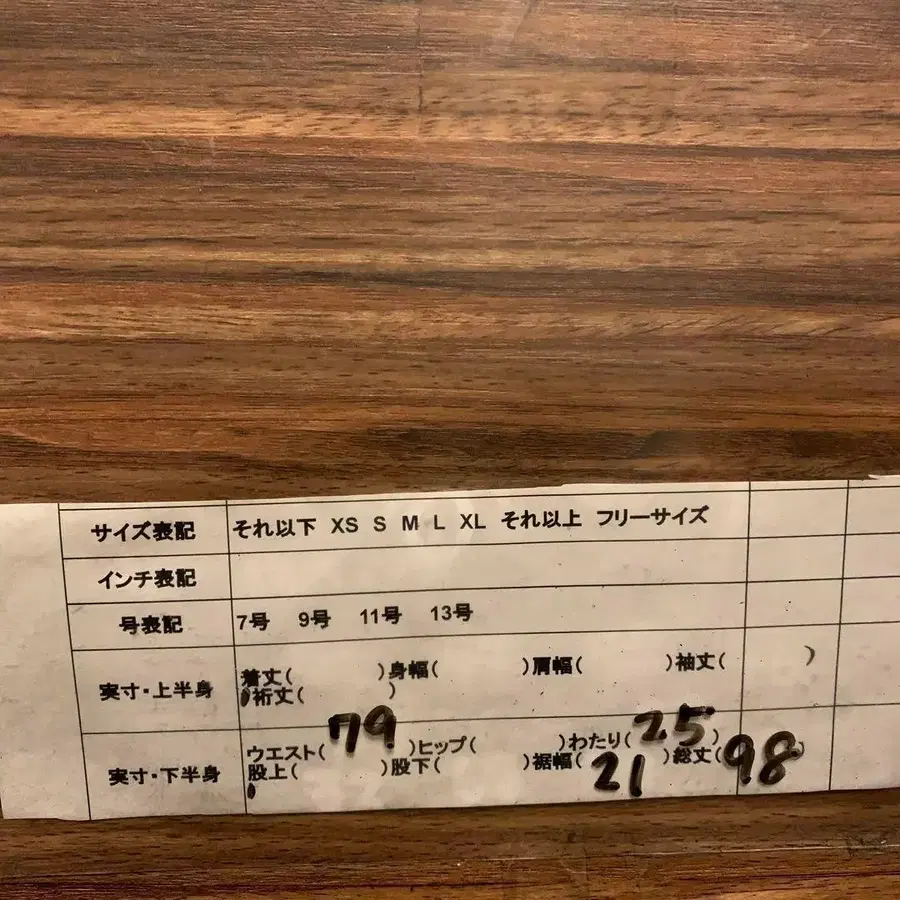 サイズ表記 それ以下 XS S M L XL それ以上 フリーサイズ
インチ表記
号表記 7号 9号 11号 13号
実寸・上半身 着丈( )身幅( )肩幅( )袖丈( )
裄丈( )
実寸・下半身 ウエスト(79)ヒップ( )わたり(25)
股上( )股下( )裾幅(21)総丈(98)